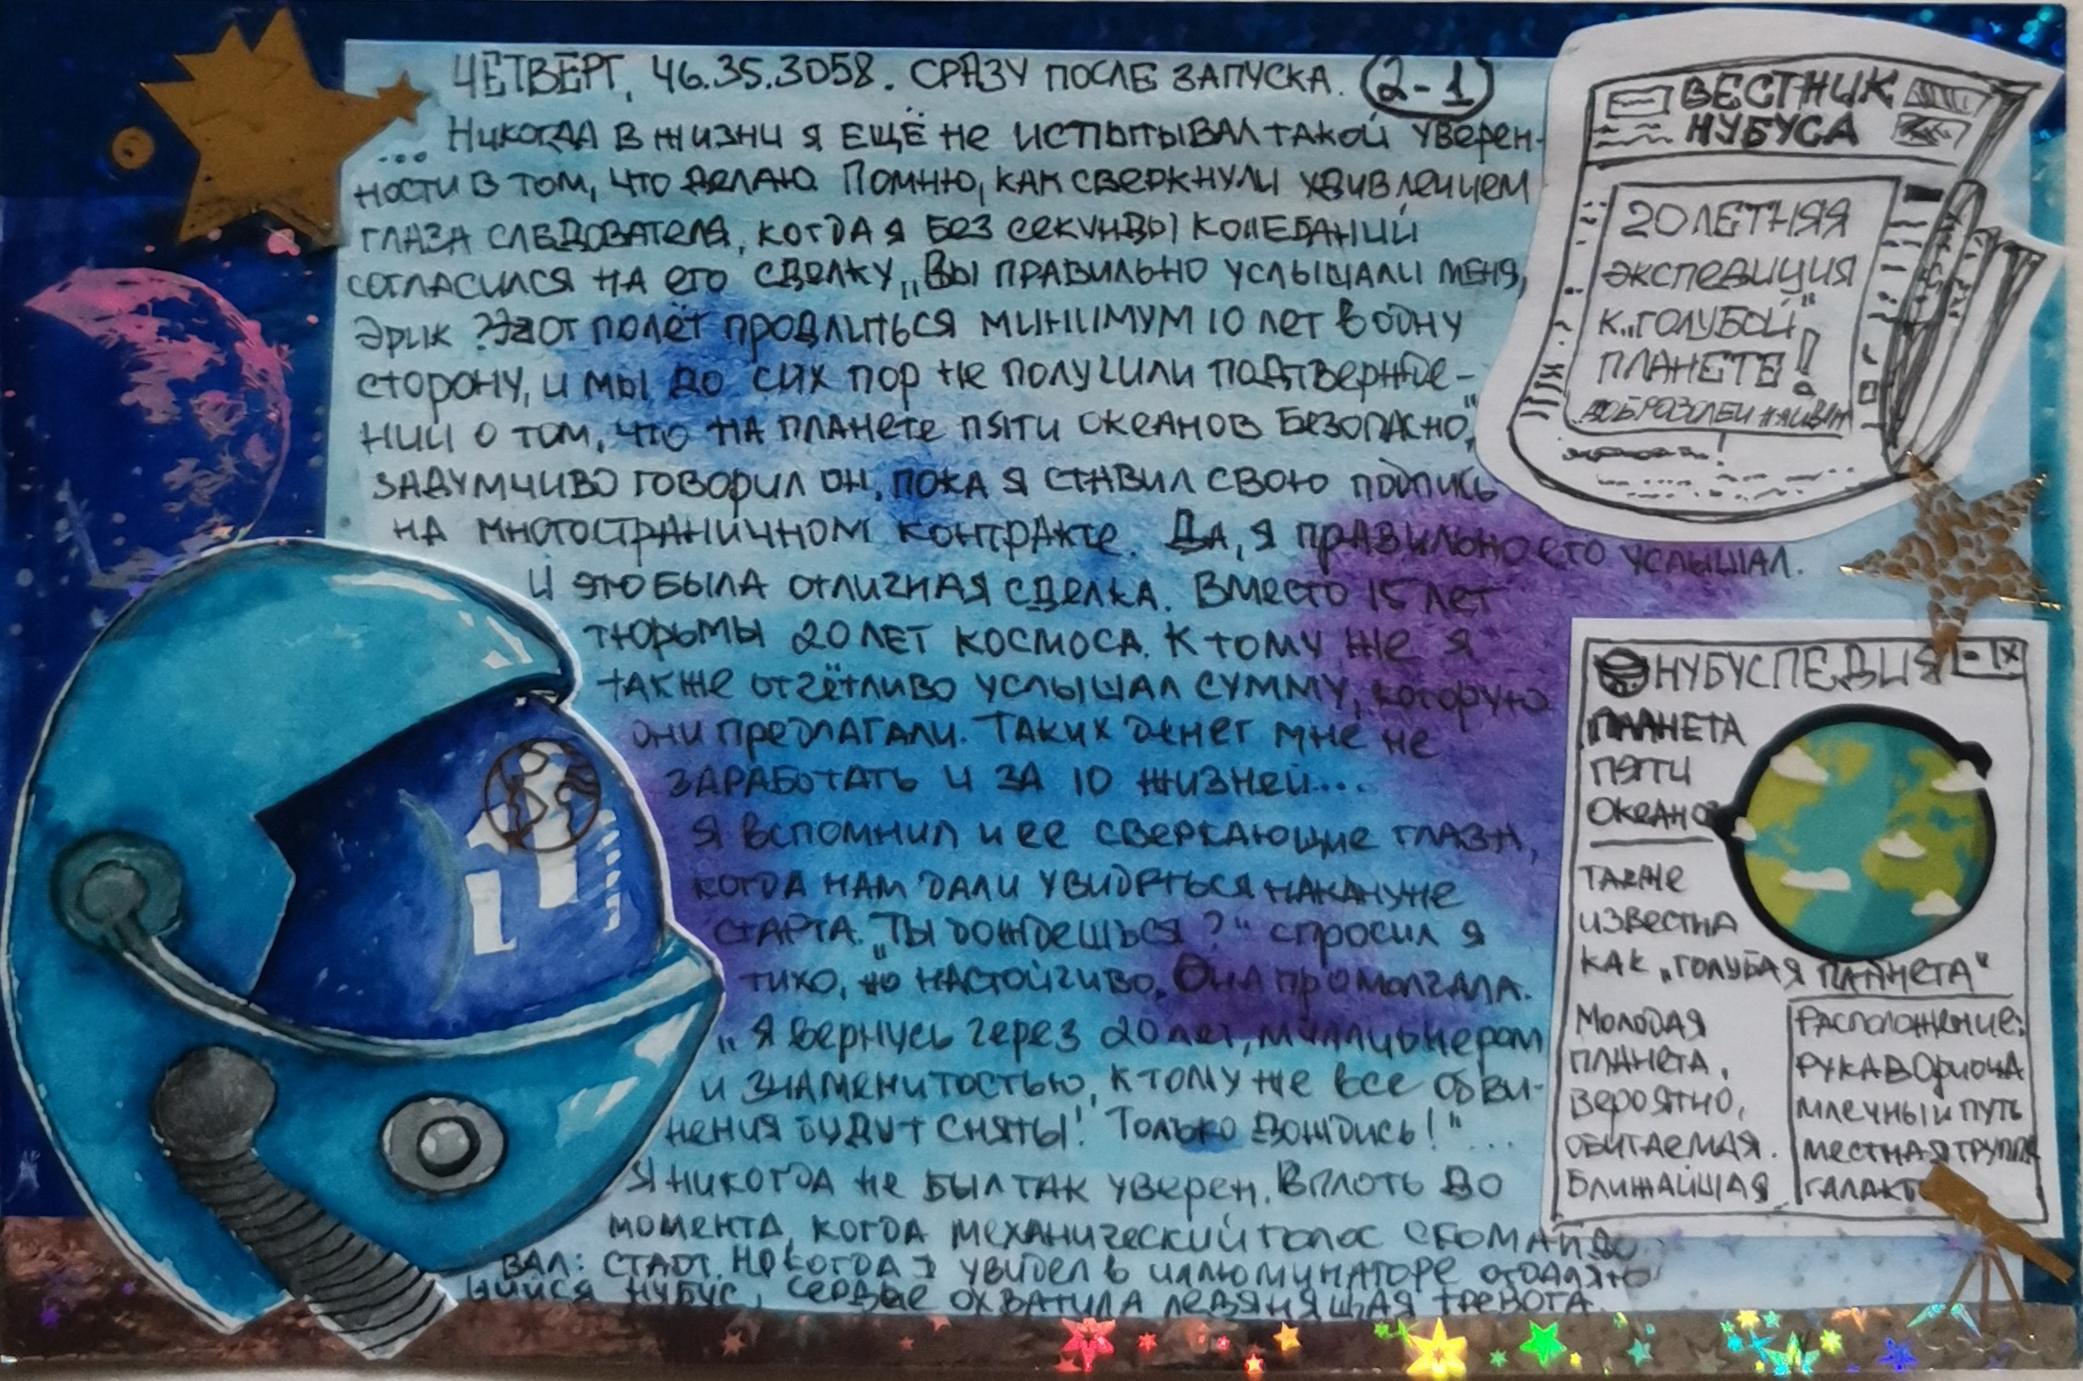 ЧЕТВЕРГ, 46.35.3058. СРАЗУ ПОСЛЕ ЗАПУСКА. (2-1)
... Никогда в жизни я ещё не испытывал такой уверен-
ности в том, что делаю. Помню, как сверкнули удивлением
глаза следователя, когда я без секунды колебаний
согласился на его сделку „Вы правильно услышали меня,
Эрик? Этот полёт продлиться минимум 10 лет в одну
сторону, и мы до сих пор не получили подтвержде-
ний о том, что на планете пяти океанов безопасно,"
задумчиво говорил он, пока я ставил свою подпись
на многостраничном контракте. Да, я правильно его услышал.
И это была отличная сделка. Вместо 15 лет
тюрьмы 20 лет космоса. К тому же я
также отчётливо услышал сумму, которую
они предлагали. Таких денег мне не
заработать и за 10 жизней...
Я вспомнил и ее сверкающие глаза,
когда нам дали увидеться накануне
старта. „Ты дождешься?" спросил я
тихо, но настойчиво. Она промолчала.
„Я вернусь через 20 лет, миллионером
и знаменитостью, к тому же все обви-
нения будут сняты! Только дождись!"...
Я никогда не был так уверен. Вплоть до
момента, когда механический голос скомандо
вал: старт. Но когда я увидел в иллюминаторе отдаляю
щийся Нубус, сердце охватила ледянящая тревога.
ВЕСТНИК
НУБУСА
20 ЛЕТНЯЯ
ЭКСПЕДИЦИЯ
К „ГОЛУБОЙ"
ПЛАНЕТЕ!
НУБУСПЕДИЯ - X
ПЛАНЕТА
ПЯТИ
ОКЕАНОВ
ТАКЖЕ
ИЗВЕСТНА
КАК „ГОЛУБАЯ ПЛАНЕТА"
Молодая
планета,
вероятно,
обитаемая.
Ближайшая
Расположение:
Рукав Ориона
Млечный путь
Местная группа
галакт